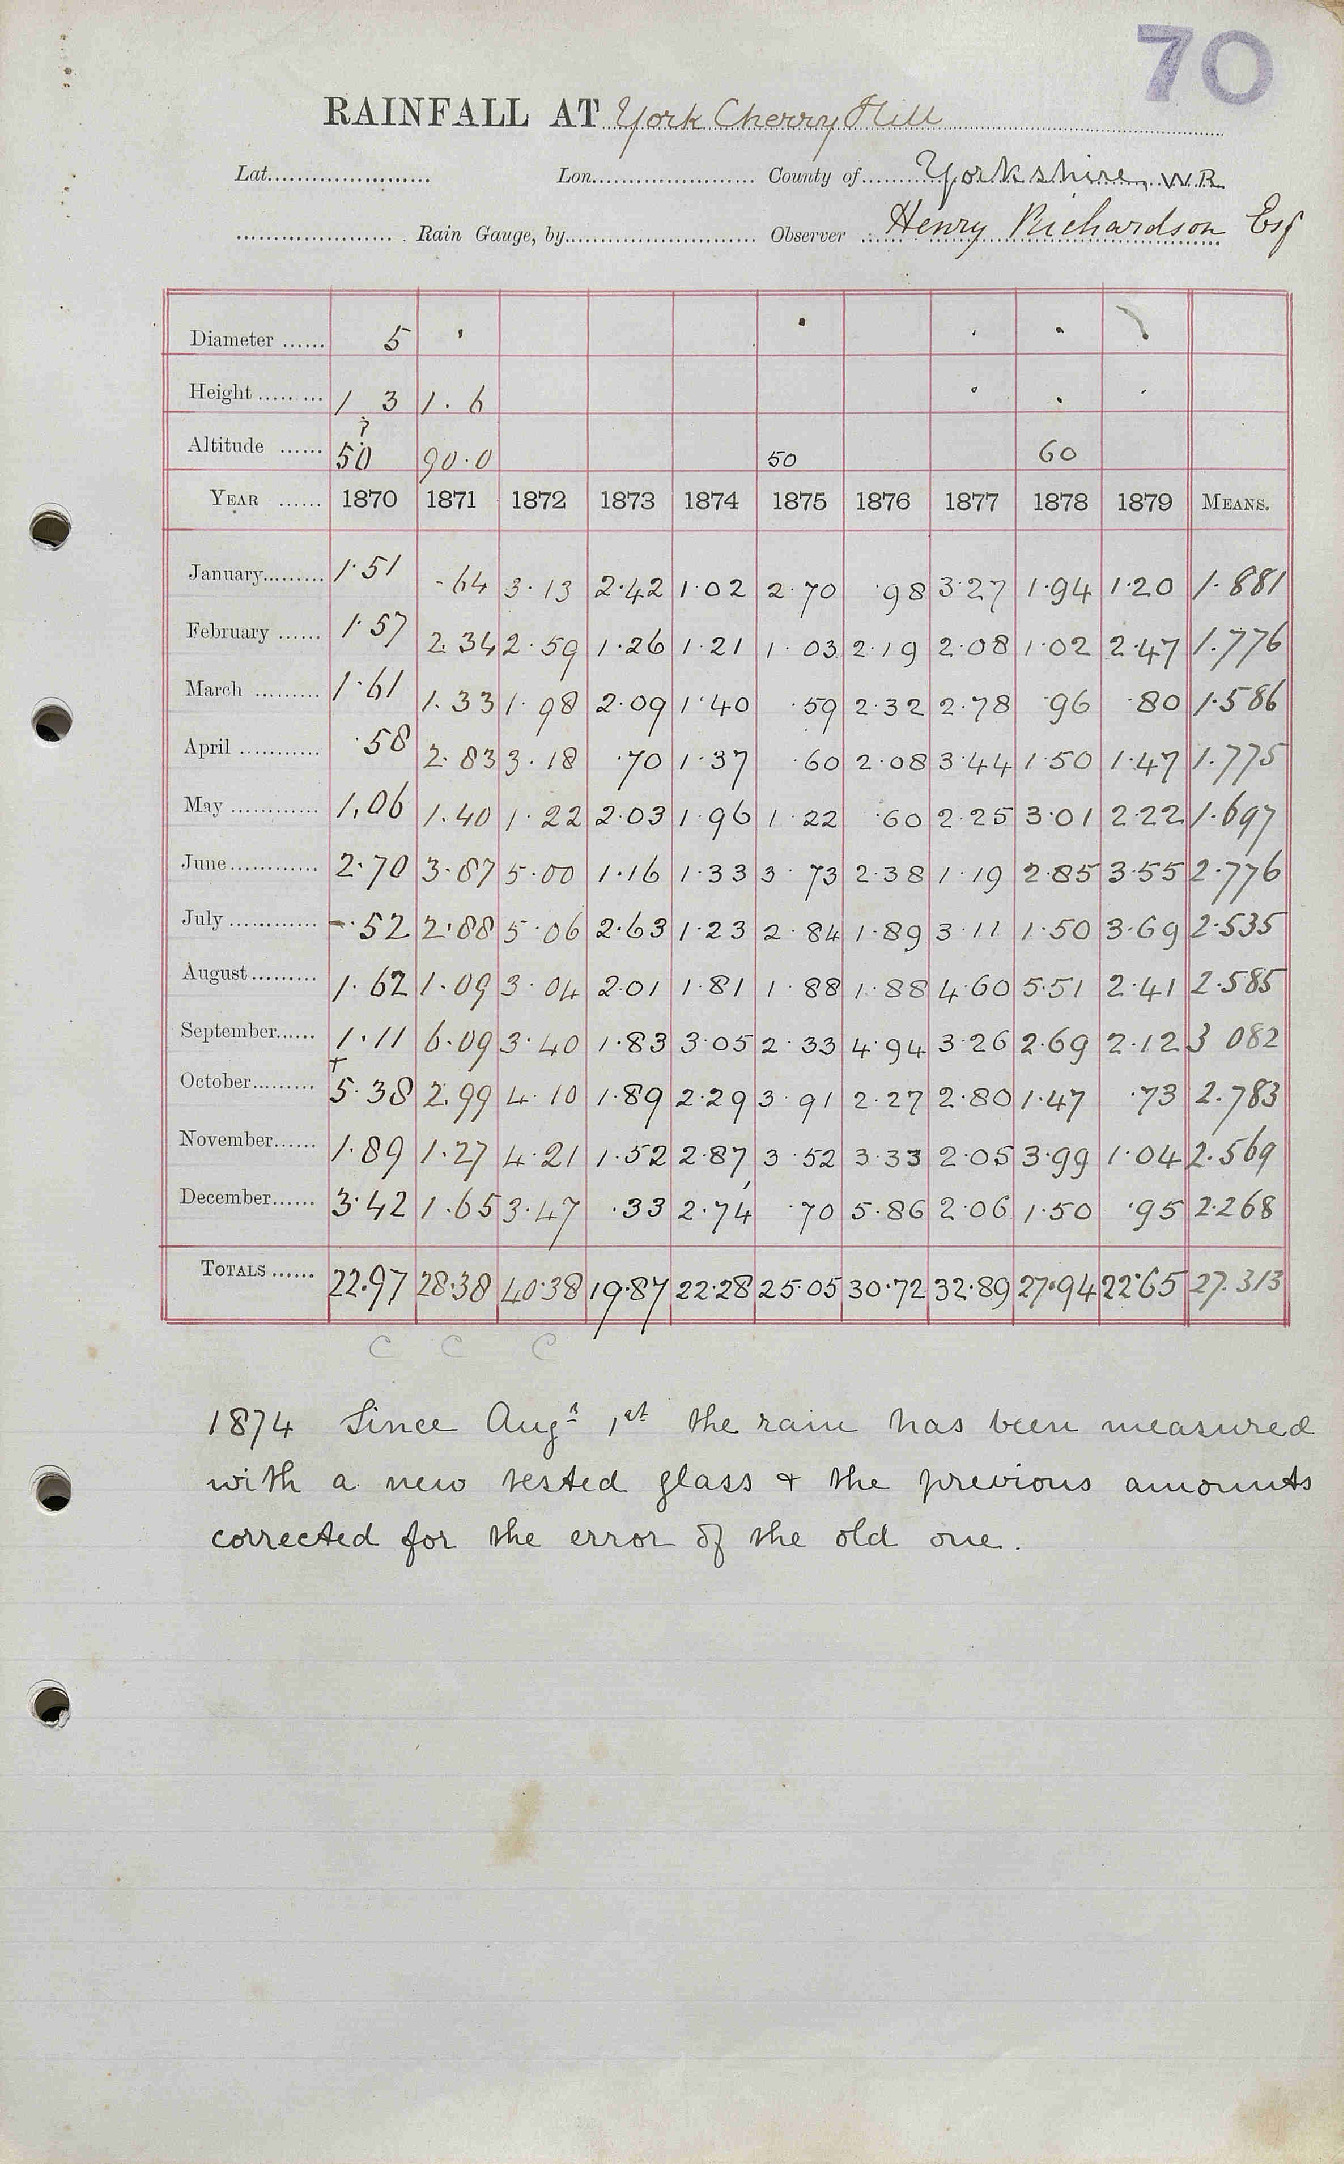 70
RAINFALL AT York Cherry Hill
Lat. Lon. County of Yorkshire, W.R.
Rain Gauge, by Observer Henry Richardson Esq
Diameter 5
Height 1 3 1.6
Altitude ? 50 90.0 50 60
YEAR 1870 1871 1872 1873 1874 1875 1876 1877 1878 1879 MEANS.
January 1.51 .64 3.13 2.42 1.02 2.70 .98 3.27 1.94 1.20 1.881
February 1.57 2.34 2.59 1.26 1.21 1.03 2.19 2.08 1.02 2.47 1.776
March 1.61 1.33 1.98 2.09 1.40 .59 2.32 2.78 .96 .80 1.586
April .58 2.83 3.18 .70 1.37 .60 2.08 3.44 1.50 1.47 1.775
May 1.06 1.40 1.22 2.03 1.96 1.22 .60 2.25 3.01 2.22 1.697
June 2.70 3.87 5.00 1.16 1.33 3.73 2.38 1.19 2.85 3.55 2.776
July .52 2.88 5.06 2.63 1.23 2.84 1.89 3.11 1.50 3.69 2.535
August 1.62 1.09 3.04 2.01 1.81 1.88 1.88 4.60 5.51 2.41 2.585
September 1.11 6.09 3.40 1.83 3.05 2.33 4.94 3.26 2.69 2.12 3 082
October 5.38 2.99 4.10 1.89 2.29 3.91 2.27 2.80 1.47 .73 2.783
November 1.89 1.27 4.21 1.52 2.87 3.52 3.33 2.05 3.99 1.04 2.569
December 3.42 1.65 3.47 .33 2.74 .70 5.86 2.06 1.50 .95 2.268
TOTALS 22.97 28.38 40.38 19.87 22.28 25.05 30.72 32.89 27.94 22.65 27.313
C C C
1874 Since Augt 1st the rain has been measured
with a new tested glass & the previous amounts
corrected for the error of the old one.